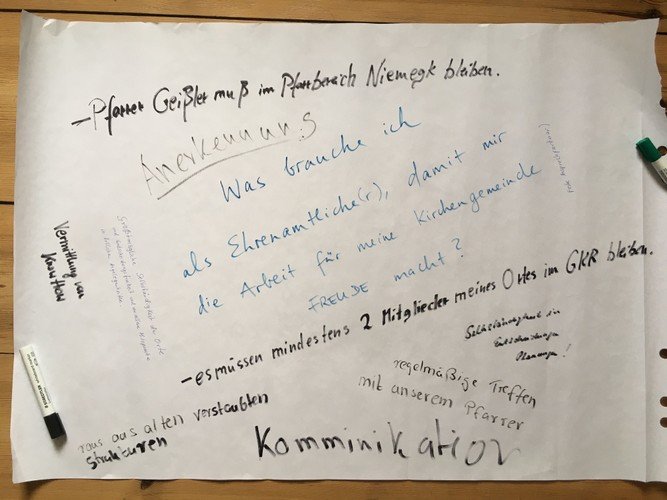 - Pfarrer Geißler muß im Pfarrbereich Niemegk bleiben.
Anerkennung
Was brauche ich
als Ehrenamtliche(r), damit mir
die Arbeit für meine Kirchengemeinde
FREUDE macht?
Vermittlung von
Knowhow
Größtmögliche Selbständigkeit der Orte
- es müssen mindestens 2 Mitglieder meines Ortes im GKR bleiben.
Selbständigkeit in
Entscheidungen
Planungen!
regelmäßige Treffen
mit unserem Pfarrer
raus aus alten verstaubten
strukturen
Komminikation